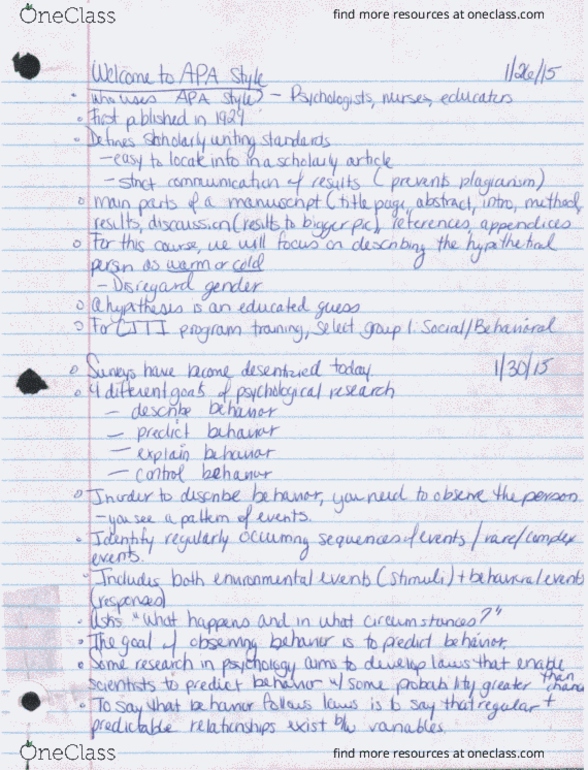 OneClass
find more resources at oneclass.com
Welcome to APA Style 1/26/15
• Who uses APA Style? – Psychologists, nurses, educators
• First published in 1929
• Defines scholarly writing standards
– easy to locate info in a scholarly article
– strict communication of results (prevents plagiarism)
• main parts of a manuscript (title page, abstract, intro, method,
results, discussion (results to bigger pic), references, appendices
• For this course, we will focus on describing the hypothetical
person as warm or cold
– Disregard gender
• A hypothesis is an educated guess
• For CITI program training, select group 1: Social/Behavioral
• Surveys have become desentized today 1/30/15
• 4 different goals of psychological research
– describe behavior
– predict behavior
– explain behavior
– control behavior
• In order to describe behavior, you need to observe the person.
– you see a pattern of events.
• Identify regularly occurring sequences of events / rare/complex
events.
– Includes both environmental events (stimuli) + behavioral events
(responses)
• Asks "What happens and in what circumstances?"
• The goal of observing behavior is to predict behavior.
• Some research in psychology aims to develop laws that enable
scientists to predict behavior w/ some probability greater than chance
• To say what behavior follows laws is to say that regular +
predictable relationships exist b/w variables.
OneClass
find more resources at oneclass.com